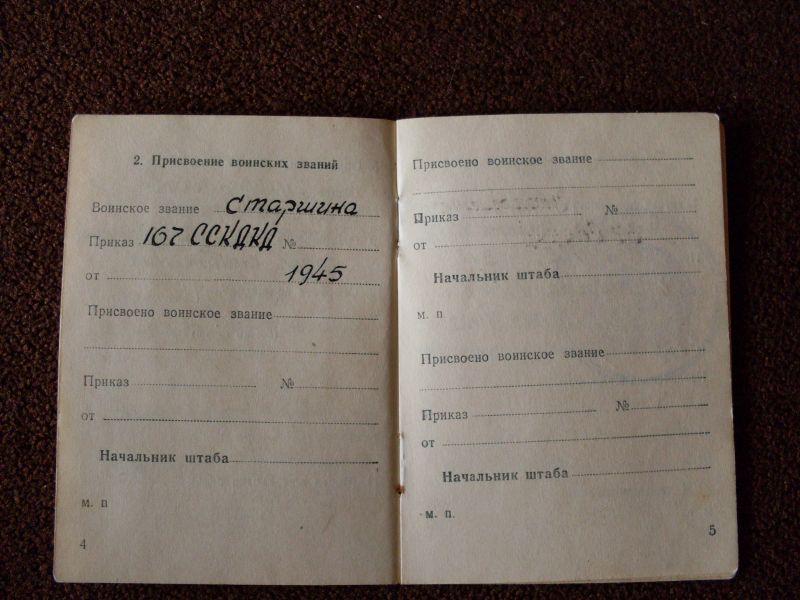 2. Присвоение воинских званий
Воинское звание Старшина
Приказ 167 ССКДКД №
от 1945
Присвоено воинское звание
Приказ №
от
Начальник штаба
м. п
4
Присвоено воинское звание
Приказ №
от
Начальник штаба
м. п
Присвоено воинское звание
Приказ №
от
Начальник штаба
м. п.
5